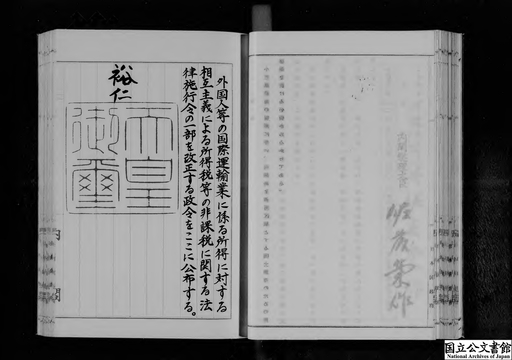 外国人等の国際運輸業に係る所得に対する
相互主義による所得税等の非課税に関する法
律施行令の一部を改正する政令をここに公布する。
裕仁
天皇
御璽
内閣総理大臣
佐藤榮作
国立公文書館
National Archives of Japan